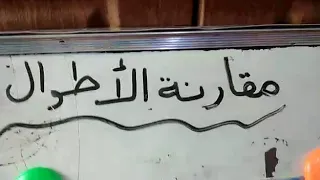 مقارنة الأطوال